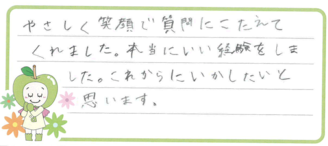 やさしく笑顔で質問にこたえて
くれました。本当にいい経験をしま
した。これからにいかしたいと
思います。